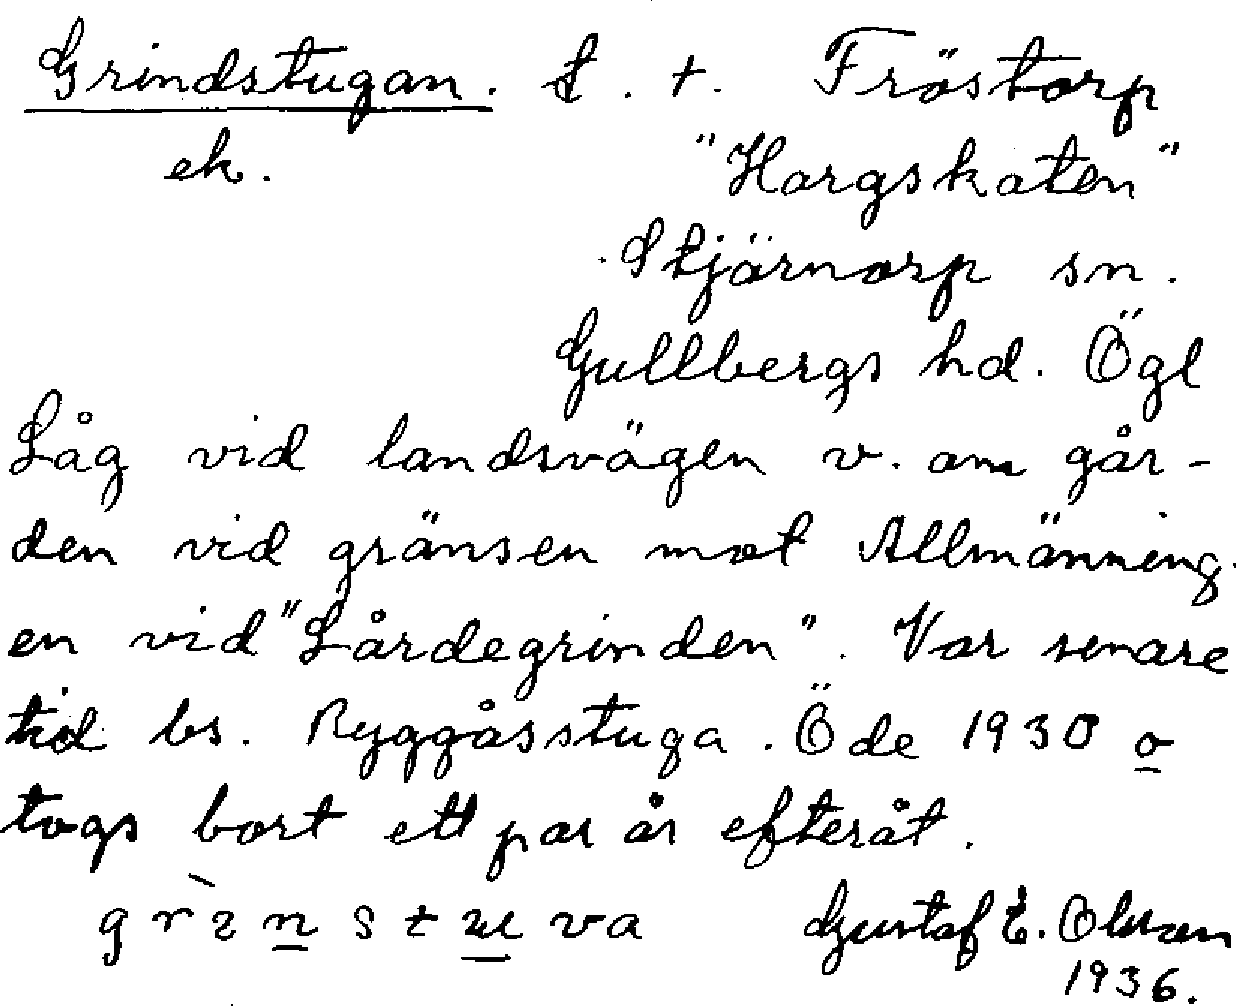 Grindstugan. f. t. Fröstorp
ek. "Hargskaten"
Stjärnorp sn.
Gullbergs hd. Ögl
Låg vid landsvägen v. om går-
den vid gränsen mot Allmänning-
en vid "Lårdegrinden". Var senare
tid bs. Ryggåsstuga. Öde 1930 o
togs bort ett par år efteråt.
Gustaf E. Olsson
1936.